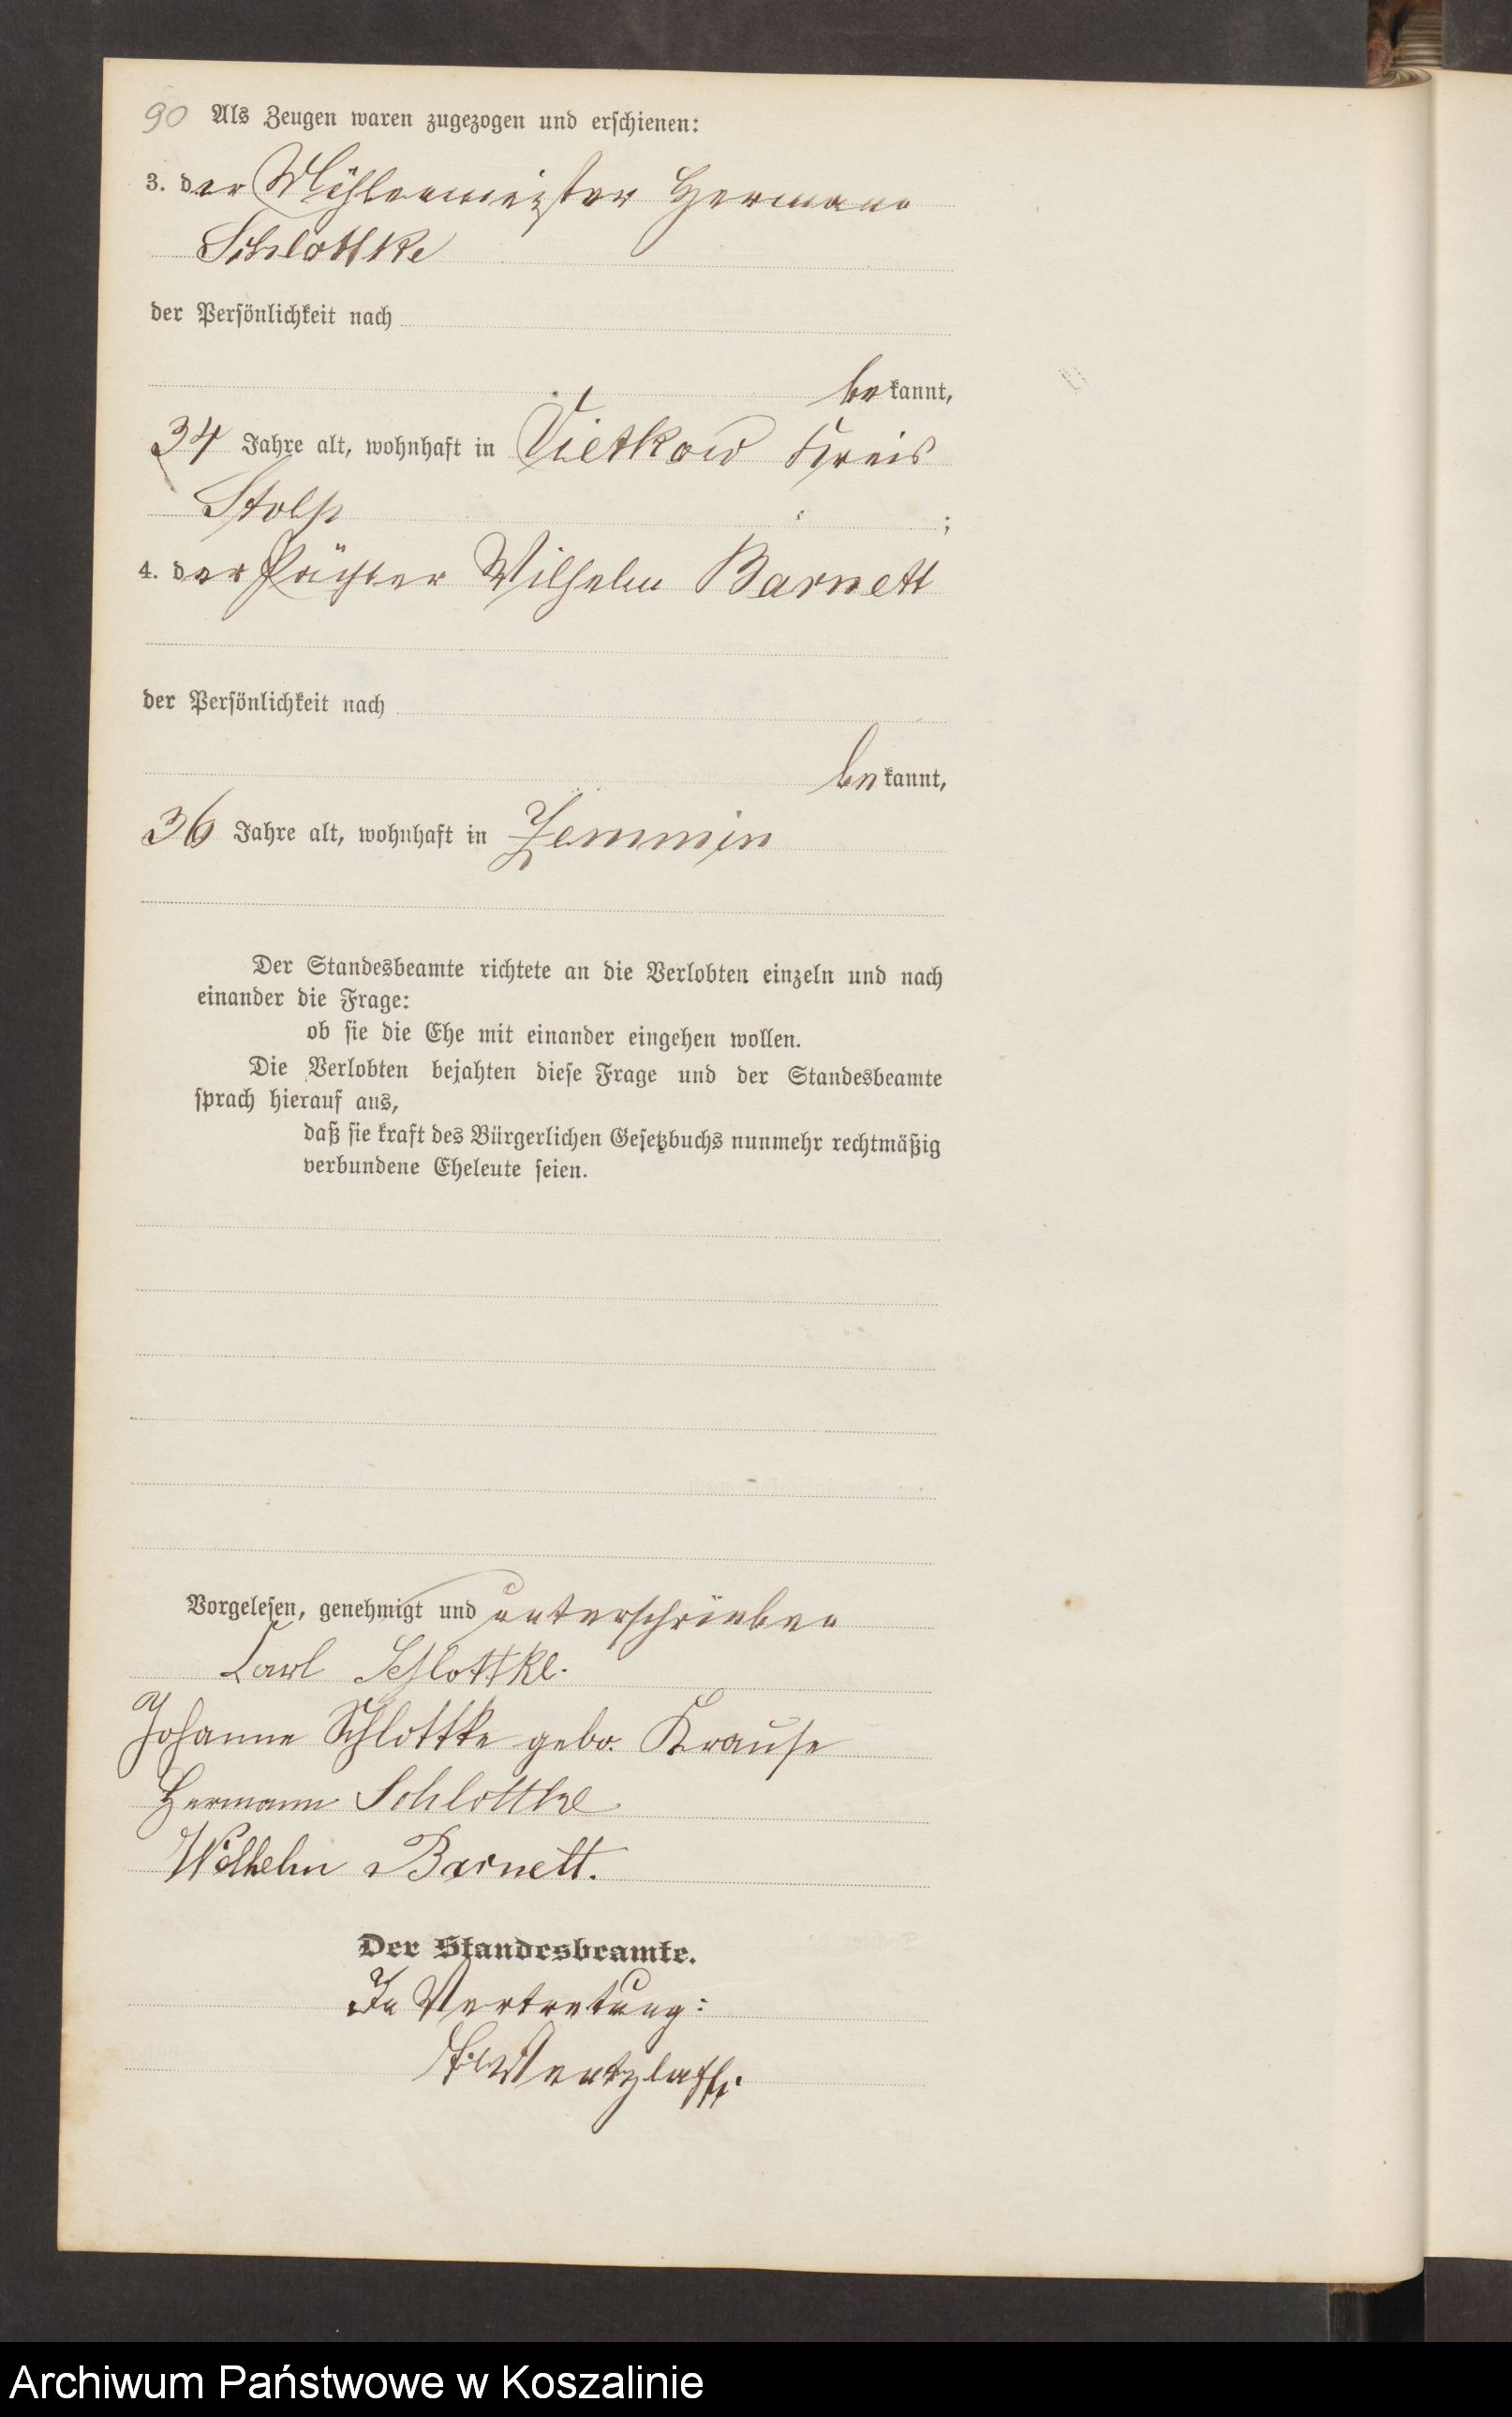 90 Als Zeugen waren zugezogen und erschienen:
3. der Mühlenmeister Hermann
Schlottke
der Persönlichkeit nach
bekannt,
34 Jahre alt, wohnhaft in Vietkow Kreis
Stolp ;
4. der Pächter Wilhelm Barnett
der Persönlichkeit nach
bekannt,
36 Jahre alt, wohnhaft in Zemmin
Der Standesbeamte richtete an die Verlobten einzeln und nach
einander die Frage:
ob sie die Ehe mit einander eingehen wollen.
Die Verlobten bejahten diese Frage und der Standesbeamte
sprach hierauf aus,
daß sie kraft des Bürgerlichen Gesetzbuchs nunmehr rechtmäßig
verbundene Eheleute seien.
Vorgelesen, genehmigt und unterschrieben
Carl Schlottke.
Johanne Schlottke gebo. Krause
Hermann Schlottke
Wilhelm Barnett.
Der Standesbeamte.
In Vertretung:
Archiwum Państwowe w Koszalinie